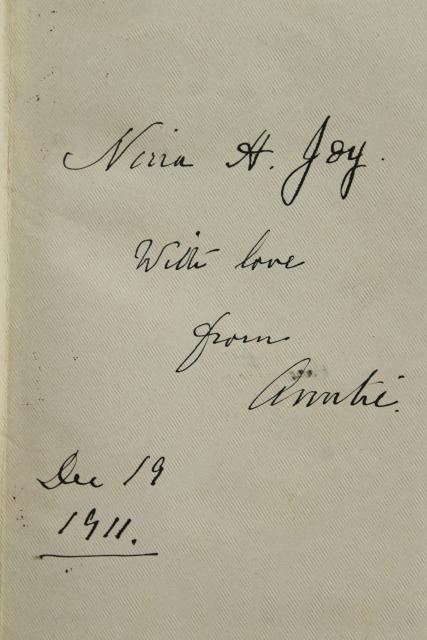 Nina H. Joy.
With love
from
Auntie.
Dec 19
1911.